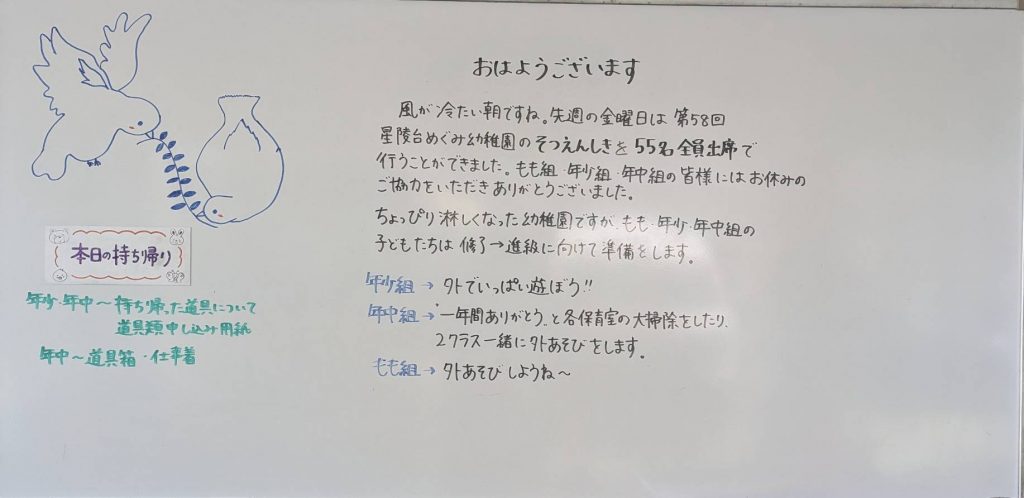 おはようございます
風が冷たい朝ですね。先週の金曜日は第58回
星陵台めぐみ幼稚園のそつえんしきを55名全員出席で
行うことができました。もも組・年少組・年中組の皆様にはお休みの
ご協力をいただきありがとうございました。
ちょっぴり淋しくなった幼稚園ですが、もも・年少・年中組の
子どもたちは修了→進級に向けて準備をします。
年少組→外でいっぱい遊ぼう!!
年中組→"一年間ありがとう"と各保育室の大掃除をしたり、
2クラス一緒に外あそびをします。
もも組→外あそびしようね〜
本日の持ち帰り
年少・年中〜持ち帰った道具について
道具類申し込み用紙
年中〜道具箱・仕事着